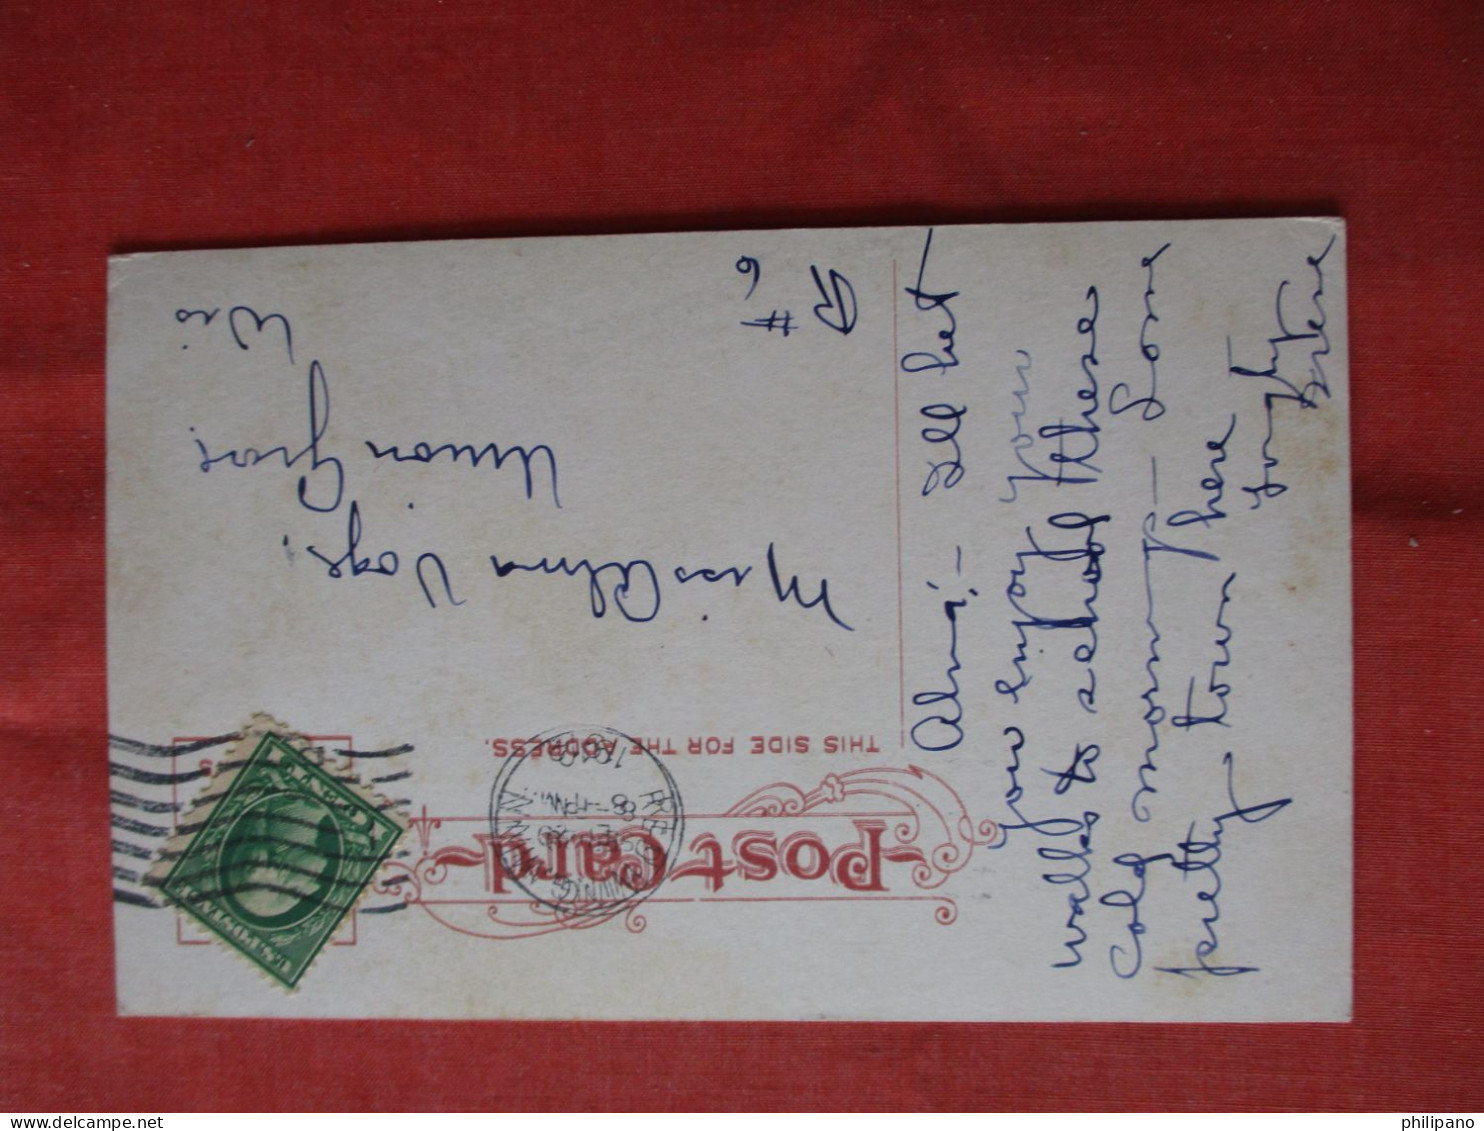 Post Card
THIS SIDE FOR THE ADDRESS.
RED WING
MINN
Miss Alma Voge,
Union Grove
Wis
R
#6
Alma:- I'll bet
you enjoy your
walks to school these
cold mornings- Some
pretty town here
Irene
philipano